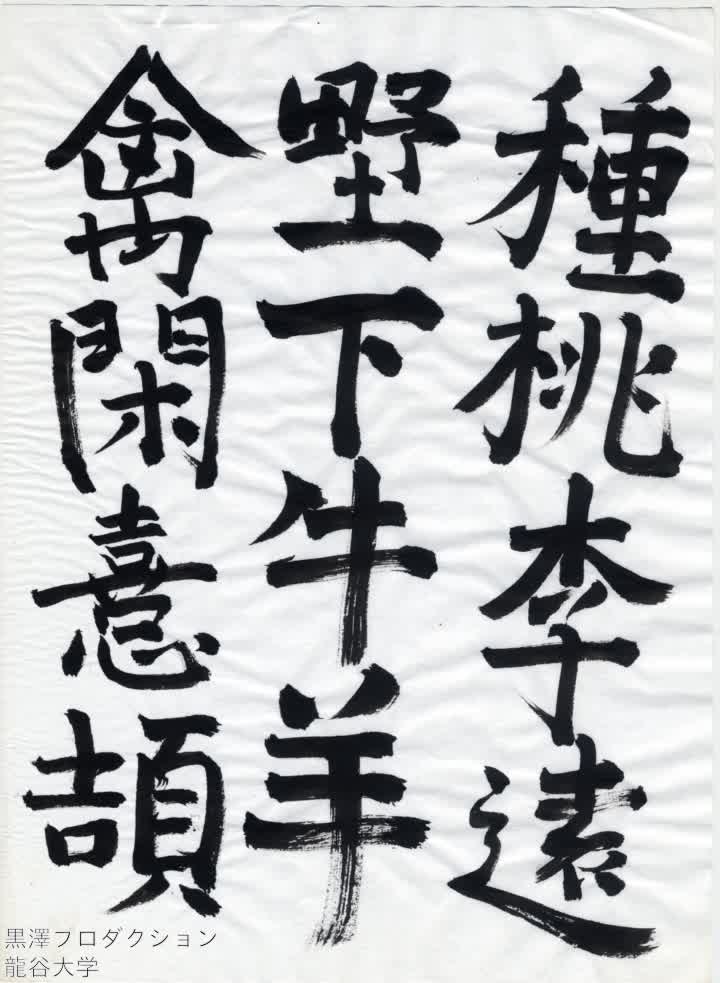 種桃李遠
野下牛羊
禽閑意頡
黒澤プロダクション
龍谷大学